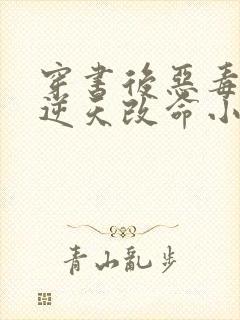 穿书後惡毒
逆天改命小
青山亂步